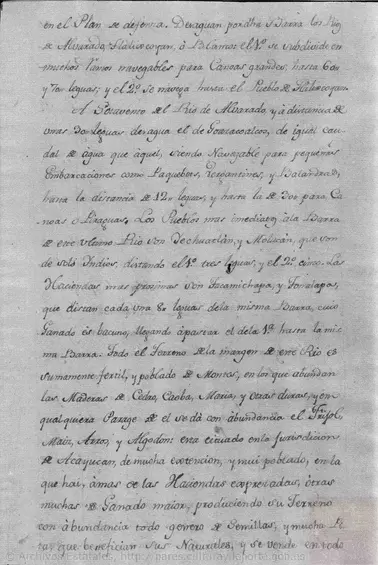 en el Plan se defensa. Desaguan por dha Barra los Rios
de Alvarado, Tlalixcoyan, ò Blanco; el 1º se subdivide en
muchos Ramos navegables para Canoas grandes, hasta 60
y leguas; y el 2º se navega hasta el Pueblo de Tlalixcoyan.
A Sotavento de el Rio de Alvarado, y à distancia de
unas leguas desagua el de Goazacoalcos, de igual cau-
dal de agua que àquel, siendo Navegable para pequeñas
Embarcaciones como Paquebotes, Bergantines, y Balandras,
hasta la distancia de 12 leguas, y hasta la de 30 para Ca-
noas ò Piraguas. Los Pueblos mas imediatos àla Barra
de este ultimo Rio son Ychuatlan, y Moloacan, que son
de solo Indios, distando el 1º tres leguas, y el 2º cinco. Las
Haciendas mas proximas son Tacamichapa, y Tonalapas,
que distan cada una 8 leguas de la misma Barra, cuio
Ganado es bacuno, llegando àpastar el dela 1ª hasta la mis-
ma Barra. Todo el Terreno de la margen de este Rio es
sumamente fertil, y poblado de Montes, en los que abundan
las Maderas de Cedro, Caoba, Maria, y otras duras, y en
qualquiera Parage de el se dà con abundancia el Frijol,
Maiz, Arroz, y Algodon: està cituado enla Jurisdiccion
de Acayucan, de mucha extencion, y mui poblado, en la
que hai, àmas de las Haciendas expresadas, otras
muchas de Ganado maior, produciendo su Terreno
con àbundancia todo genero de Semillas, y mucha Pi-
ta, que benefician sus Naturales, y se vende en todo